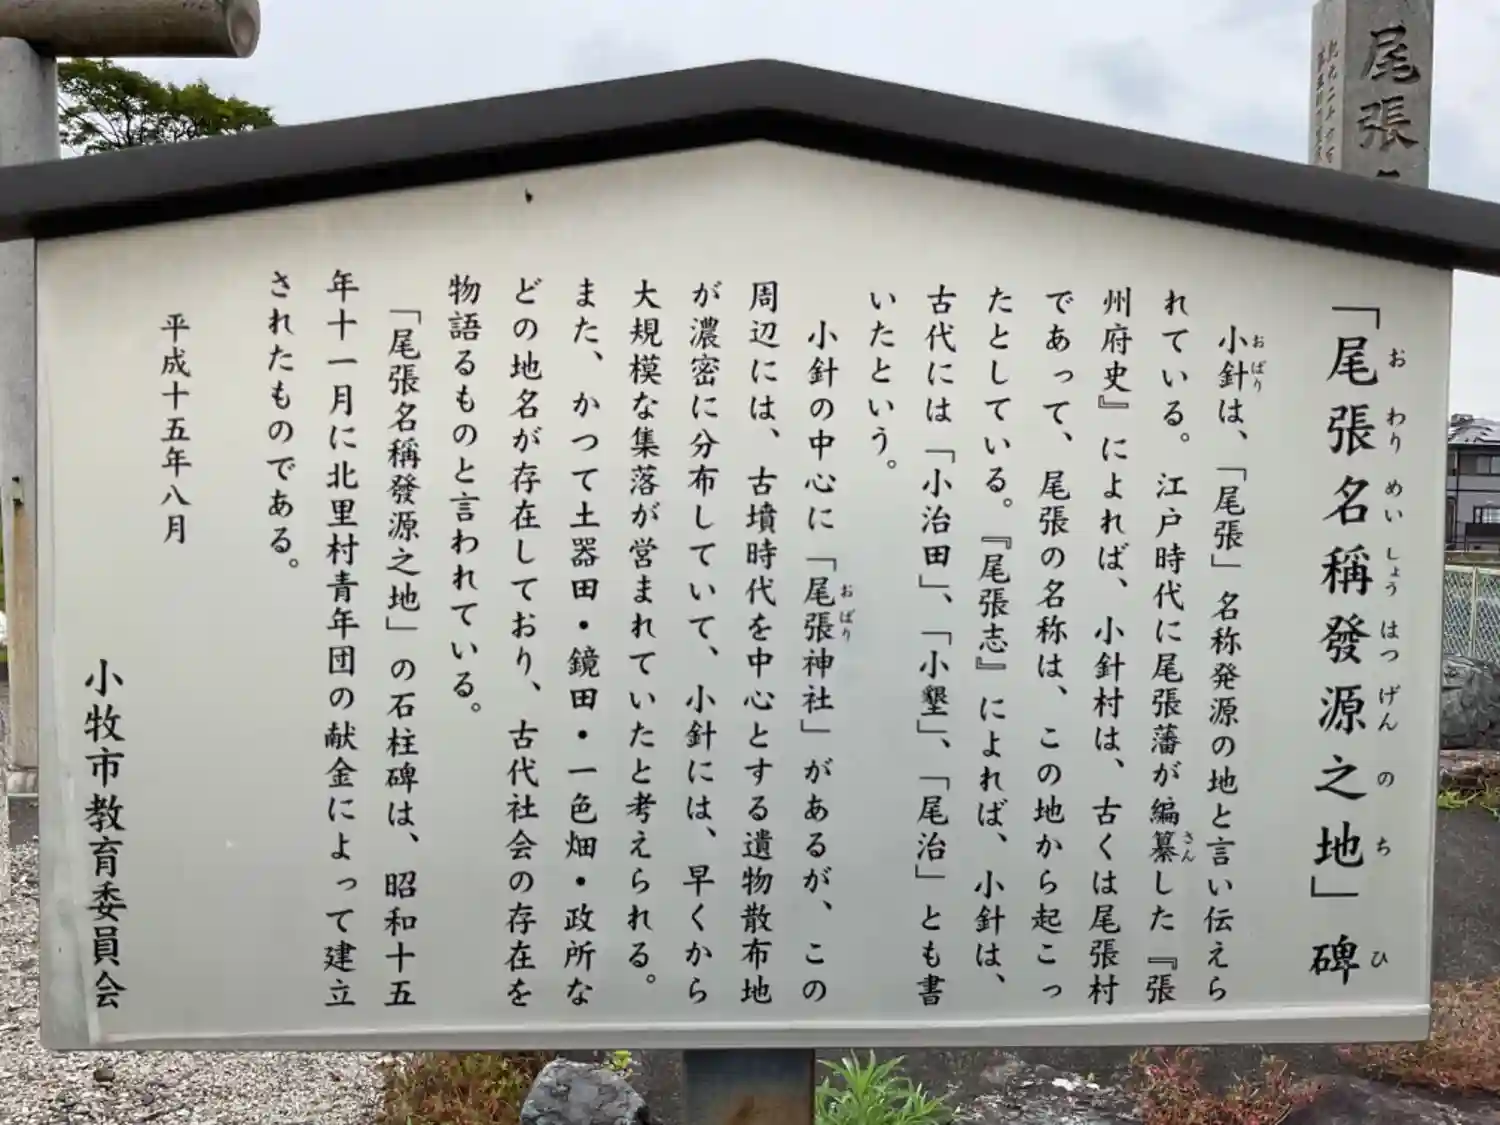 「尾張名稱發源之地」碑
おわりめいしょうはつげんのちひ
小針は、「尾張」名称発源の地と言い伝えら
おばり
れている。江戸時代に尾張藩が編纂した『張
さん
州府史』によれば、小針村は、古くは尾張村
であって、尾張の名称は、この地から起こっ
たとしている。『尾張志』によれば、小針は、
古代には「小治田」、「小墾」、「尾治」とも書
いたという。
小針の中心に「尾張神社」があるが、この
おばり
周辺には、古墳時代を中心とする遺物散布地
が濃密に分布していて、小針には、早くから
大規模な集落が営まれていたと考えられる。
また、かつて土器田・鏡田・一色畑・政所な
どの地名が存在しており、古代社会の存在を
物語るものと言われている。
「尾張名稱發源之地」の石柱碑は、昭和十五
年十一月に北里村青年団の献金によって建立
されたものである。
平成十五年八月
小牧市教育委員会
尾張